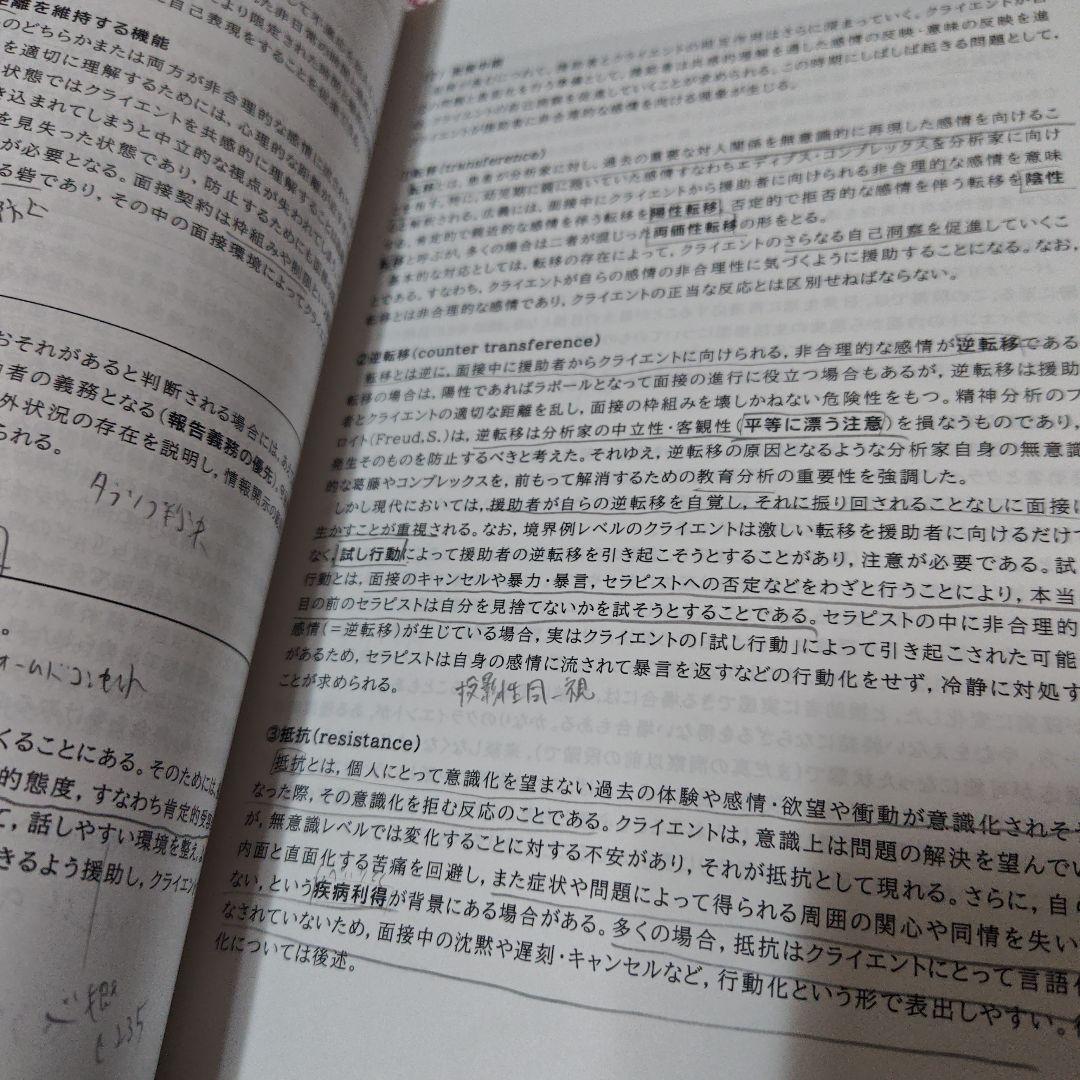 距離を維持する機能
のどちらかまたは両方が非合理的な感情に
を適切に理解するためには,心理的な距離が
状態ではクライエントを共感的に理解すること
き込まれてしまうと中立的な視点が失われてしまう
を見失った状態であり,防止するためにも面接
が必要となる。面接契約は枠組みや制限と
る砦であり,その中の面接環境によってクライ
おそれがあると判断される場合には,
者の義務となる(報告義務の優先)。
外状況の存在を説明し,情報開示の
られる。
タラソフ判決
。
ォームドコンセント
くることにある。そのためには,
的態度,すなわち肯定的受容
て,話しやすい環境を整え,
きるよう援助し,クライエン
助者とクライエントの相互作用はさらに深まっていく。クライエントが自
援助者は共感的理解を通した感情の反映・意味の反映を進
自己洞察を促進していくことが求められる。この時期にしばしば起きる問題として,
イエントが援助者に非合理的な感情を向ける現象が生じる。
転移(transference)
転移とは,患者が分析家に対し,過去の重要な対人関係を無意識的に再現した感情を向けるこ
とを指す。特に,幼児期に親に抱いていた感情すなわちエディプス・コンプレックスを分析家に向け
ると解釈される。広義には,面接中にクライエントから援助者に向けられる非合理的な感情を意味
する。肯定的で親近的な感情を伴う転移を陽性転移,否定的で拒否的な感情を伴う転移を陰性
転移と呼ぶが,多くの場合は二者が混じった両価性転移の形をとる。
基本的な対応としては,転移の存在によって,クライエントのさらなる自己洞察を促進していくこ
とである。すなわち,クライエントが自らの感情の非合理性に気づくように援助することになる。なお,
転移とは非合理的な感情であり,クライエントの正当な反応とは区別せねばならない。
②逆転移(counter transference)
転移とは逆に,面接中に援助者からクライエントに向けられる,非合理的な感情が逆転移である
転移の場合は,陽性であればラポールとなって面接の進行に役立つ場合もあるが,逆転移は援助
者とクライエントの適切な距離を乱し,面接の枠組みを壊しかねない危険性をもつ。精神分析のフ
ロイト(Freud,S.)は,逆転移は分析家の中立性・客観性(平等に漂う注意)を損なうものであり,
発生そのものを防止するべきと考えた。それゆえ,逆転移の原因となるような分析家自身の無意識
的な葛藤やコンプレックスを,前もって解消するための教育分析の重要性を強調した。
しかし現代においては,援助者が自らの逆転移を自覚し,それに振り回されることなしに面接に
生かすことが重視される。なお,境界例レベルのクライエントは激しい転移を援助者に向けるだけで
なく,試し行動によって援助者の逆転移を引き起こそうとすることがあり,注意が必要である。試し
行動とは,面接のキャンセルや暴力・暴言,セラピストへの否定などをわざと行うことにより,本当に
目の前のセラピストは自分を見捨てないかを試そうとすることである。セラピストの中に非合理的な
感情(=逆転移)が生じている場合,実はクライエントの「試し行動」によって引き起こされた可能
があるため,セラピストは自身の感情に流されて暴言を返すなどの行動化をせず,冷静に対処す
ことが求められる。
投影性同一視
③抵抗(resistance)
抵抗とは,個人にとって意識化を望まない過去の体験や感情・欲望や衝動が意識化されそう
なった際,その意識化を拒む反応のことである。クライエントは,意識上は問題の解決を望んでい
が,無意識レベルでは変化することに対する不安があり,それが抵抗として現れる。さらに,自
内面と直面化する苦痛を回避し,また症状や問題によって得られる周囲の関心や同情を失い
ない,という疾病利得が背景にある場合がある。多くの場合,抵抗はクライエントにとって言語化
なされていないため,面接中の沈黙や遅刻・キャンセルなど,行動化という形で表出しやすい。行
化については後述。